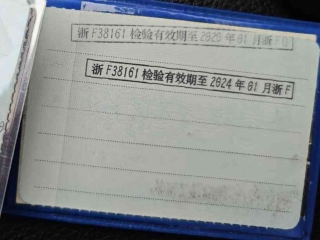 浙F38161检验有效期至2020年01月浙F
浙F38161检验有效期至2024年01月浙F